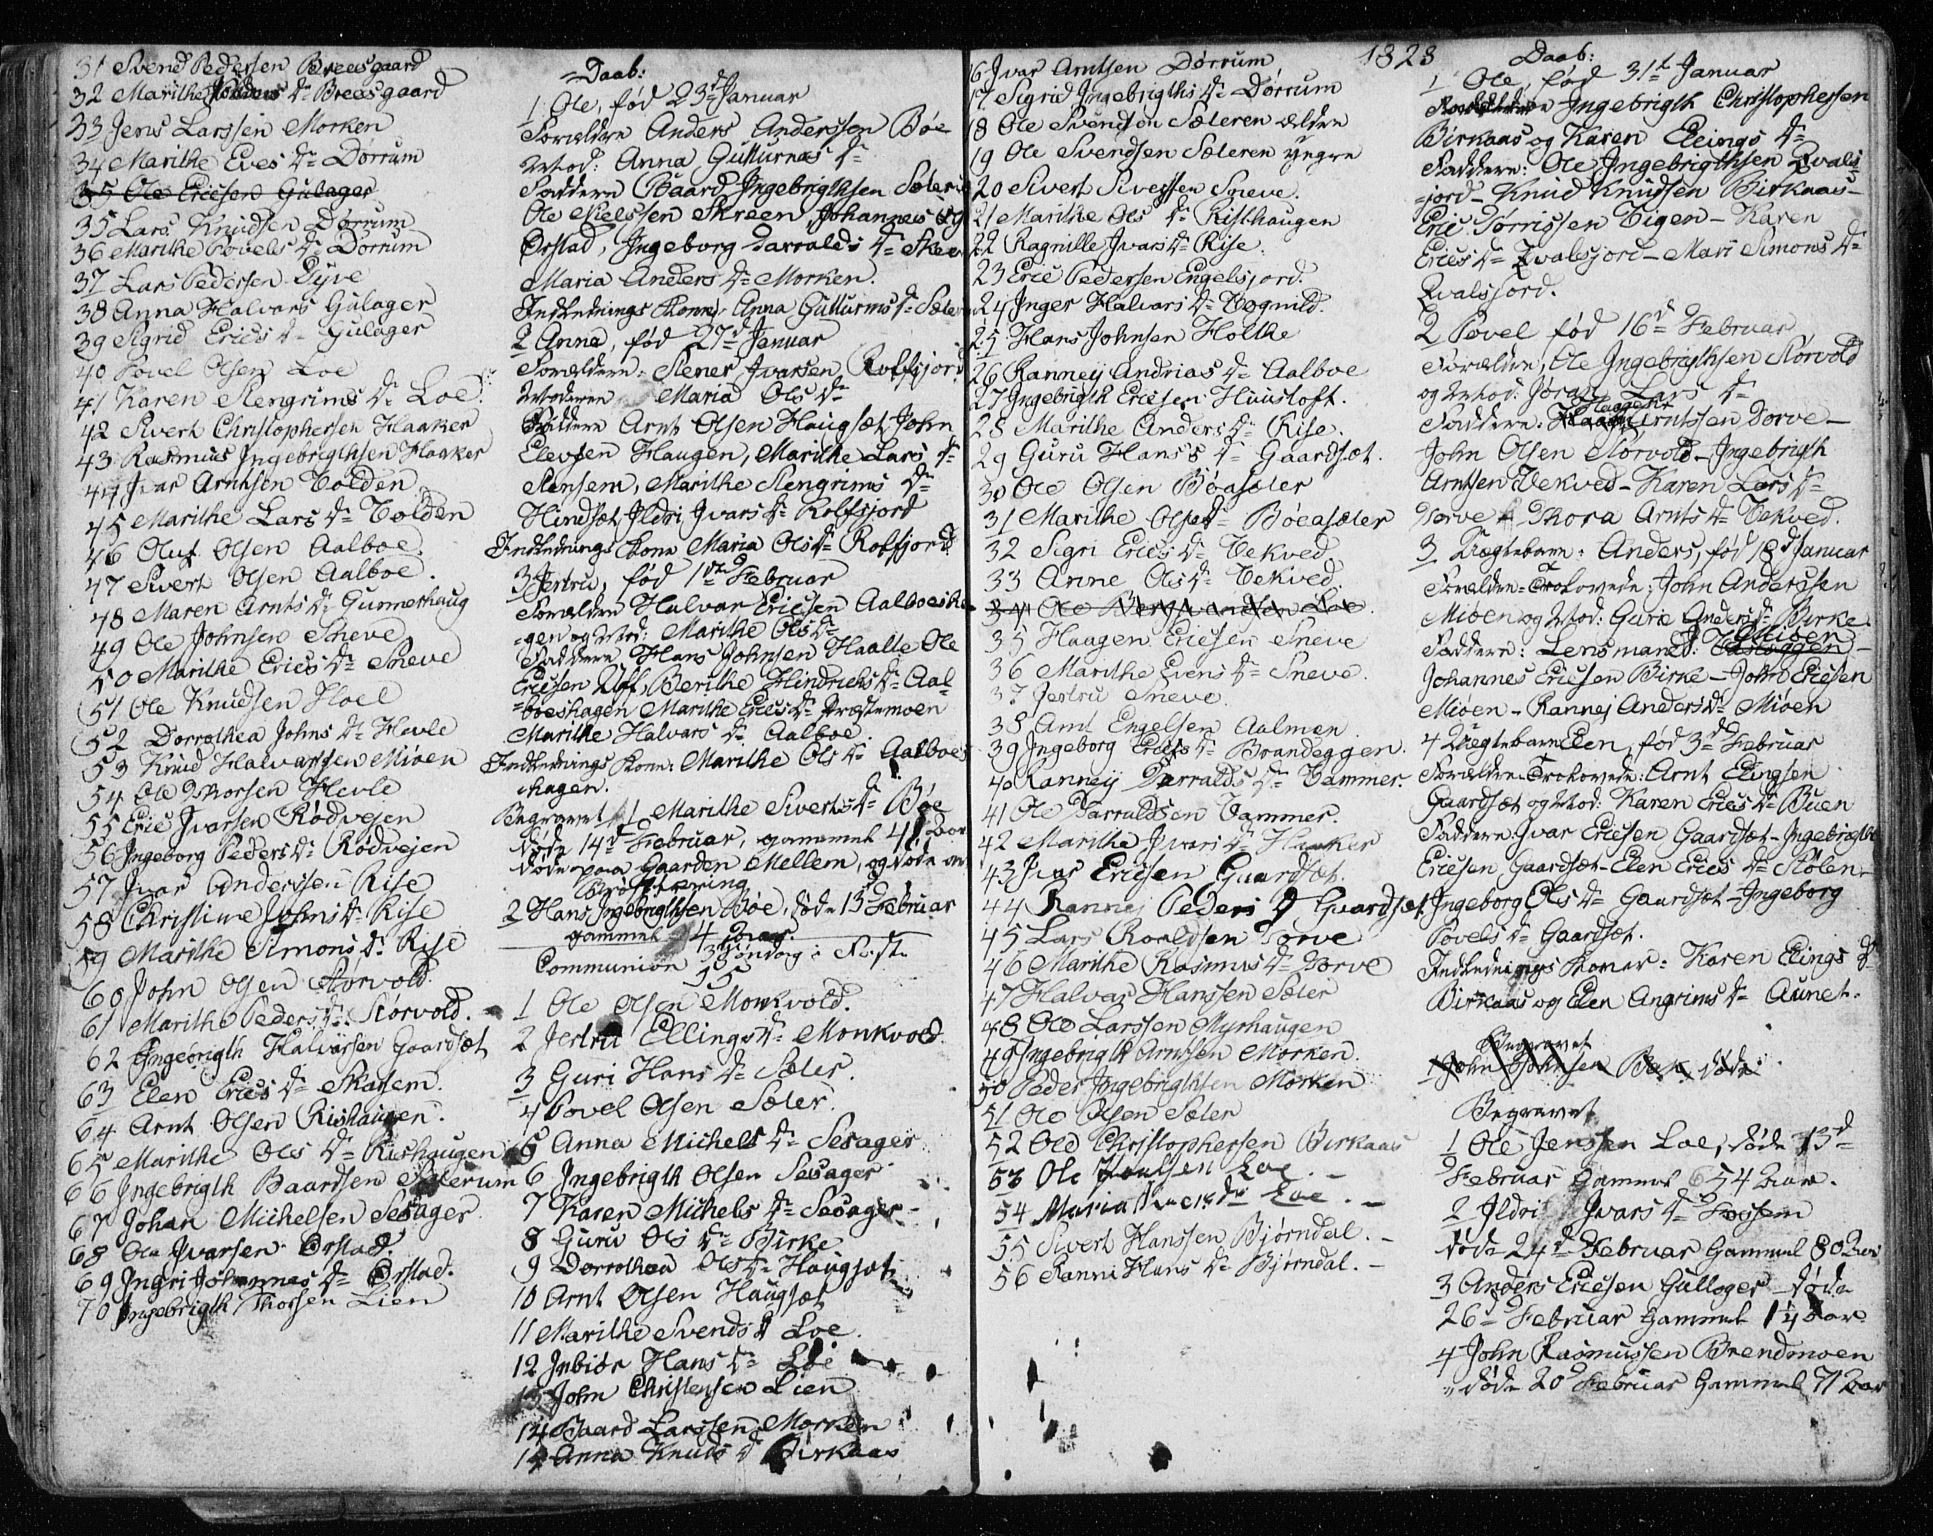 31 Svend Pedersen Breesgaard
32 Marithe Anders Dr Breesgaard
33 Jens Larssen Morken
34 Marithe Eves Dr Dørrum
35 Ole Ericsen Gulager
35 Lars Knudsen Dørrum
36 Marithe Povels Dr Dørrum
37 Lars Pedersen Dyve
38 Anna Halvars Gulager
39 Sigrid Erics Dr Gulager
40 Povel Olsen Loe
41 Karen Stengrims Dr Loe.
42 Sivert Christophersen Haaker
43 Rasmus Ingebrigthsen Haaker
44 Ivar Arntsen Tolden
45 Marithe Lars Dr Tolden
46 Oluf Olsen Aalboe.
47 Sivert Olsen Aalboe.
48 Maren Arnts Dr Gunnerhaug
49 Ole Johnsen Sneve
50 Marithe Erics Dr Sneve
51 Ole Knudsen Hoel
52 Dorrothea Johns Dr Hevle
53 Knud Halvarssen Mioen
54 Ole Thorsen Hevle
55 Eric Ivarsen Rødvejen
56 Ingeborg Peders Dr Rødvejen
57 Ivar Anderssen Rise
58 Christine Johns Dr Rise
59 Marithe Simons Dr Rise
60 John Olsen Størvold
61 Marithe Peders Dr Størvold.
62 Ingebrigth Halvarssen Gaardsæt
63 Elen Erics Dr Skarsem.
64 Arnt Olsen Rishaugen.
65 Marithe Ols Dr Rishaugen
66 Ingebrigth Baardsen Sæterum
67 Johan Michelsen Sesager
68 Ole Ivarsen Ørstad.
69 Ingri Johannes Dr Ørstad.
70 Ingebrigth Thorsen Lien
Daab:
1 Ole, fød 23d Januar
Forældre Anders Anderssen Bøe
Mod: Anna Gutturms Dr
Faddere Baard Ingebrigthsen Sæter
Ole Nielssen Skreen Johannes
Ørstad, Ingeborg Tarralds Dr Skre
Maria Anders Dr Morken.
Indlednings Kone: Anna Gutturms Dr Sæter
2 Anna, fød 27d Januar
Forældre: Stener Ivarsen Rolfsjord
Moderen Maria Ols Dr
Faddere Arnt Olsen Haugsæt, John
Elevsen Haugen, Marithe Lars Dr
Stensem, Marithe Stengrims Dr
Hindsæt, Ildri Ivars Dr Rolfsjord
Indlednings Kone Maria Ols Dr Rolfjord
3 Jertru, fød 1ste Februar
Forældre Halvar Ericsen Aalboesha
gen og Mod: Marithe Ols Dr
Faddere Hans Johnsen Haalte Ole
Ericsen Uff, Berithe Hindrichs Dr Aal-
boeshagen Marithe Erics Dr Præstemoen
Marithe Halvars Dr Aalboe.
Indlednings Kone: Marithe Ols Dr Aalboes
hagen.
Begravet 1 Marithe Siverts Dr Bøe
døde 14d Februar, gammel 41 Aar
døde paa Gaarden Mellem, og døde
2 Hans Ingebrigthsen Bøe, døde 13d Februar
gammel 4 Aar.
Communion 3 Søndag i Faste
55
1 Ole Olsen Monkvold.
2 Jertru Ellings Dr Monkvold.
3 Guri Hans Dr Sæter
4 Povel Olsen Sæter.
5 Anna Michels Dr Sesager
6 Ingebrigth Olsen Sesager
7 Karen Michels Dr Sesager
8 Guru Ols Dr Birke
9 Dorrothea Ols Dr Haugsæt
10 Arnt Olsen Haugsæt
11 Marithe Svends D Loe.
12 Inbiør Hans Dr Loe
13 John Christensen Lien
14 Baard Larssen Morken
14 Anna Knuds D Birkaas
16 Ivar Arntsen Dørrum
17 Sigrid Ingebrigths Dr Dørrum
18 Ole Svendsen Sæteren ældre
19 Ole Svendsen Sæteren yngre
20 Sivert Sivertsen Sneve.
21 Marithe Ols Dr Risthaugen
22 Ragnille Ivars Dr Rise.
23 Eric Pedersen Engelsjord.
24 Inger Halvars Dr Tognild.
25 Hans Johnsen Holthe
26 Ranney Andrias Dr Aalboe
27 Ingebrigth Ericsen Huusloft.
28 Marithe Anders Dr Rise.
29 Guru Hans Dr Gaardsæt.
30 Ole Olsen Bøasæter
31 Marithe Olsen Bøeasæter
32 Sigri Erics Dr Vekved.
33 Anne Ols Dr Vekved.
34 Ole Loe.
35 Haagen Ericsen Sneve
36 Marithe Evens Dr Sneve.
37 Jertru Sneve.
38 Arnt Engelsen Aalmen
39 Ingeborg Erics Dr Brandeggen.
40 Ranney Tarralds Dr Vammer.
41 Ole Tarraldsen Vammer.
42 Marithe Ivars Dr Haaker
43 Ivar Ericsen Gaardsæt.
44 Ranney Peders D Gaardsæt
45 Lars Roaldsen Dorve
46 Marithe Rasmus Dr Dorve
47 Halvar Hanssen Sæter
48 Ole Larssen Myrhaugen
49 Ingebrigth Arntsen Morken.
50 Peder Ingebrigthsen Morken
51 Ole Olsen Sæter
52 Ole Christophersen Birkaas
53 Ole Povelsen Loe.
54 Maria Dr Loe.
55 Sivert Hanssen Bjørndal.
56 Ranni Hans Dr Bjørndal.
1828
Daab:
1 Ole, fød 31t Januar
Forældre Ingebrigth Christophersen
Birkaas og Karen Elings Dr
Faddere: Ole Ingebrigthsen Qvals
jord - Knud Knudsen Birkaas -
Eric Torrissen Vigen - Karen
Erics Dr Qvalsjord - Mari Simons Dr
Qvalsjord.
2 Povel fød 16d Februar
Forældre, Ole Ingebrigthsen Størvold
og Mod: Joran Lars Dr
Faddere: Haagen Arntssen Dorve -
John Olsen Størvold - Ingebrigth
Arntsen Vekved - Karen Lars Dr
Dorve - Thora Arnts Dr Vekved.
3 Uægtebarn: Anders, fød 18d Januar
Forældre Trolovede: John Anderssen
Mioen og Mod: Guri Anders Dr Birke
Faddere: Lensmand: Mioen
Johannes Ericsen Birke - John Ericsen
Mioen - Rannej Anders Dr Mioen
4 Uægtebarn Elen, fød 3d Februar
Forældre Trolovede: Arnt Elingsen
Gaardsæt og Mod: Karen Erics Dr Buen
Faddere: Ivar Ericsen Gaardsæt - Ingebrigth
Ericsen Gaardsæt - Elen Erics Dr Stølen
Ingeborg Ols Dr Gaardsæt - Ingeborg
Povels Dr Gaardsæt.
Indlednings Koner: Karen Elings D
Birkaas og Elen Angrims Dr Aunet.
Begravet
1 John Johnsen døde
Begravet
1 Ole Jenssen Loe, døde 13d
Februar Gammel 54 Aar.
2 Ildri Ivars Dr Fossem
døde 24d Februar Gammel 80 Aar
3 Anders Ericsen Gullager døde
26d Februar Gammel 1¼ Aar
4 John Rasmussen Brendmoen
døde 20d Februar Gammel 71 Aar